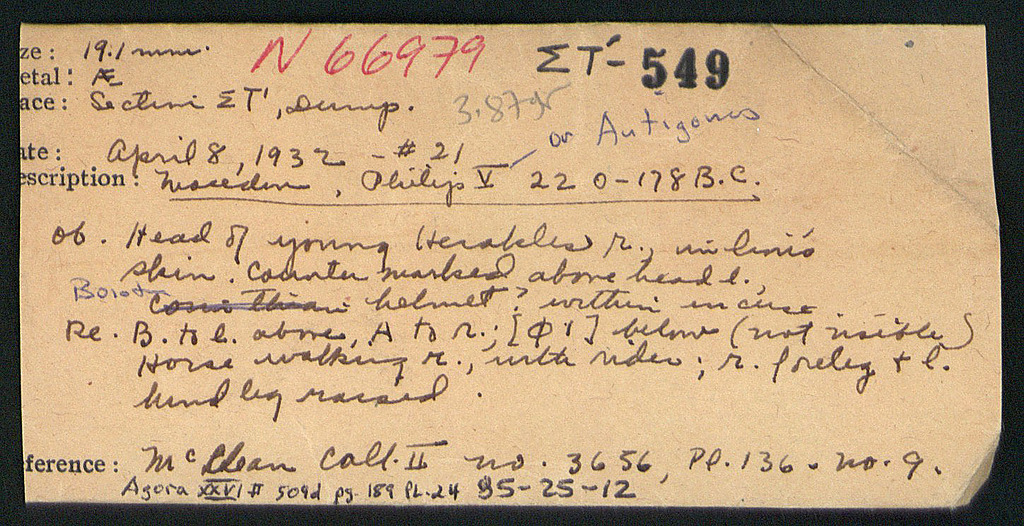 ze : 19.1 mm. N 66979 ΣΤ´- 549
etal : Æ
ace : Section ΣΤ', Dump. 3.87gr
ate : April 8, 1932 - # 21 or Antigonus
escription : Macedon, Philip V 220-178 B.C.
ob. Head of young Herakles r., in lion's
skin. Counter marked above head l.,
Boiot. Corinthian helmet? within incuse
Re. B. to l. above, A to r.; [Φ Ι] below (not visible)
Horse walking r., with rider; r. foreleg + l.
hind leg raised.
ference : McClean Coll. II no. 3656, Pl. 136. no. 9.
Agora XXVI # 509d pg. 189 PL. 24 95-25-12